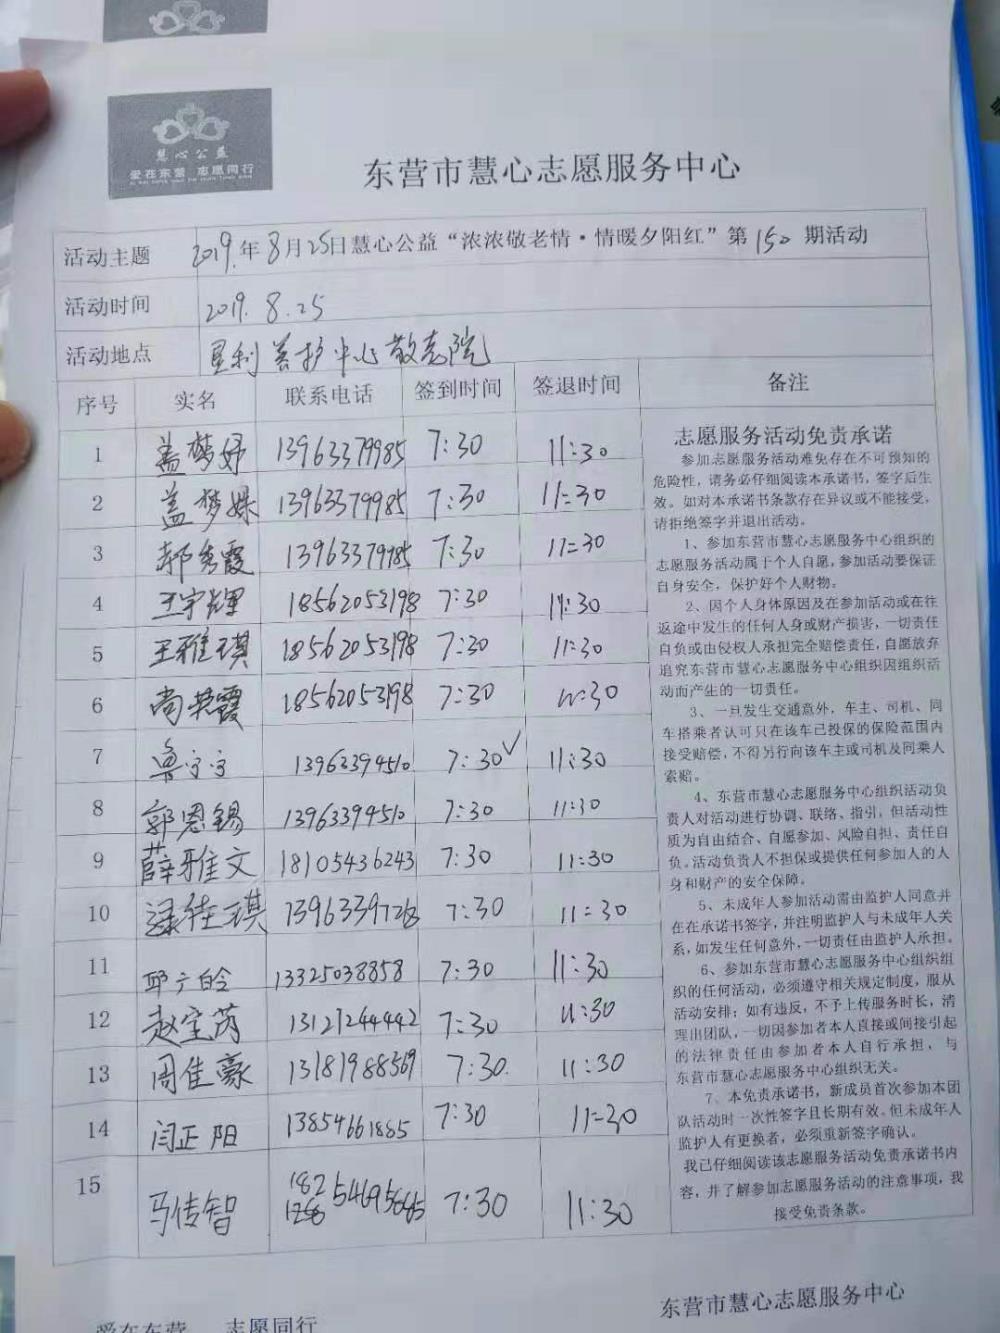 慧心公益
爱在东营 志愿同行
东营市慧心志愿服务中心
活动主题 2019.年8月25日慧心公益“浓浓敬老情·情暖夕阳红”第150期活动
活动时间 2019.8.25
活动地点 垦利养护中心敬老院
序号 实名 联系电话 签到时间 签退时间 备注
1 盖梦妤 13963379985 7:30 11:30
2 盖梦姝 13963379985 7:30 11:30
3 郝秀霞 13963379985 7:30 11:30
4 王宇辉 18562053198 7:30 11:30
5 王雅琪 18562053198 7:30 11:30
6 尚荣霞 18562053198 7:30 11:30
7 鲁宁宁 13963394510 7:30✓ 11:30
8 郭恩锡 13963394510 7:30 11:30
9 薛雅文 18105436243 7:30 11:30
10 琪 7:30 11:30
11 邱广晗 13325038858 7:30 11:30
12 赵宝芮 13127244442 7:30 11:30
13 周佳豪 13181988569 7:30. 11:30
14 闫正阳 13854661885 7:30 11:30
15 马传智 7:30 11:30
志愿服务活动免责承诺
参加志愿服务活动难免存在不可预知的
危险性，请务必仔细阅读本承诺书，签字后生
效。如对本承诺书条款存在异议或不能接受，
请拒绝签字并退出活动。
1、参加东营市慧心志愿服务中心组织的
志愿服务活动属于个人自愿，参加活动要保证
自身安全，保护好个人财物。
2、因个人身体原因及在参加活动或在往
返途中发生的任何人身或财产损害，一切责任
自负或由侵权人承担完全赔偿责任，自愿放弃
追究东营市慧心志愿服务中心组织因组织活
动而产生的一切责任。
3、一旦发生交通意外，车主、司机、同
车搭乘者认可只在该车已投保的保险范围内
接受赔偿，不得另行向该车主或司机及同乘人
索赔。
4、东营市慧心志愿服务中心组织活动负
责人对活动进行协调、联络、指引，但活动性
质为自由结合、自愿参加、风险自担、责任自
负。活动负责人不担保或提供任何参加人的人
身和财产的安全保障。
5、未成年人参加活动需由监护人同意并
在在承诺书签字，并注明监护人与未成年人关
系，如发生任何意外，一切责任由监护人承担。
6、参加东营市慧心志愿服务中心组织组
织的任何活动，必须遵守相关规定制度，服从
活动安排；如有违反，不予上传服务时长，清
理出团队，一切因参加者本人直接或间接引起
的法律责任由参加者本人自行承担，与
东营市慧心志愿服务中心组织无关。
7、本免责承诺书，新成员首次参加本团
队活动时一次性签字且长期有效。但未成年人
监护人有更换者，必须重新签字确认。
我已仔细阅读该志愿服务活动免责承诺书内
容，并了解参加志愿服务活动的注意事项，我
接受免责条款。
东营市慧心志愿服务中心
爱在东营 志愿同行